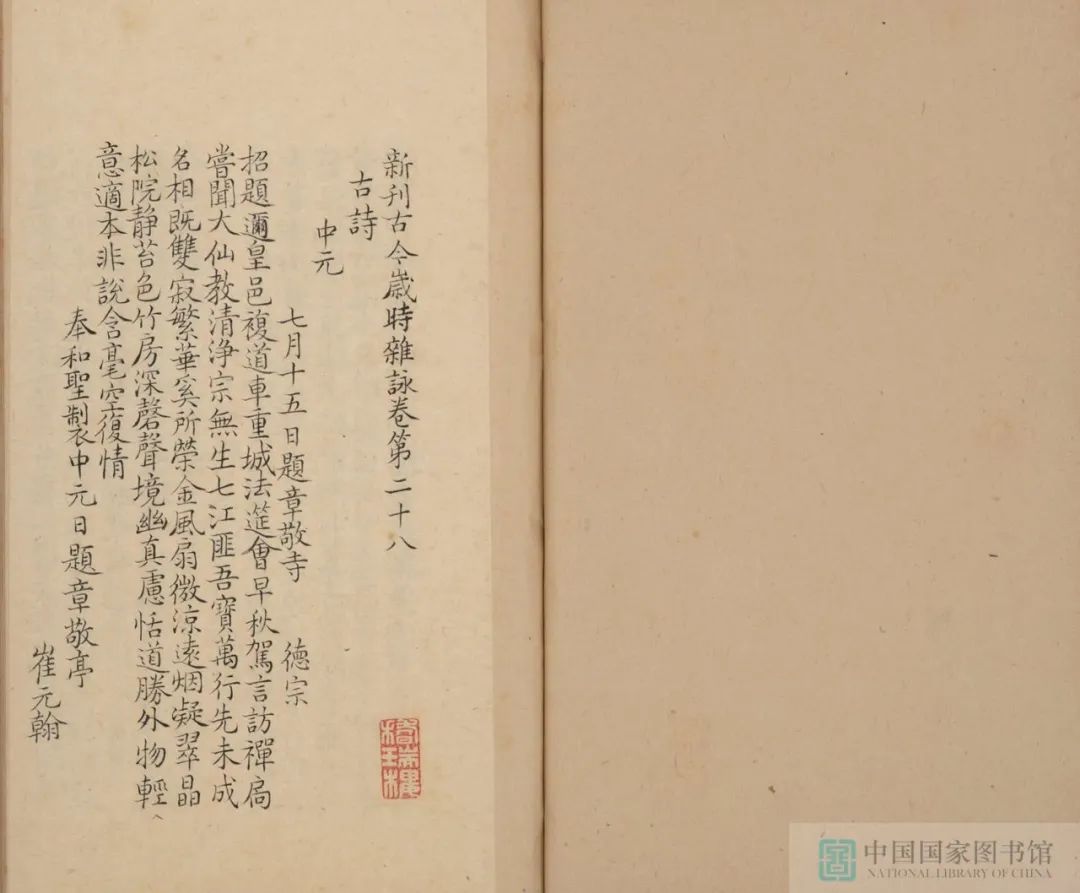 新刊古今歲時雜詠卷第二十八
古詩
中元
七月十五日題章敬寺 德宗
招題邇皇邑複道車重城法筵會早秋駕言訪禪扃
嘗聞大仙教清淨宗無生七江匪吾寶萬行先未成
名相既雙寂繁華奚所榮金風扇微涼遠烟凝翠晶
松院靜苔色竹房深磬聲境幽真慮恬道勝外物輕
意適本非說含毫空復情
奉和聖製中元日題章敬亭
崔元翰
中国国家图书馆
NATIONAL LIBRARY OF CHINA